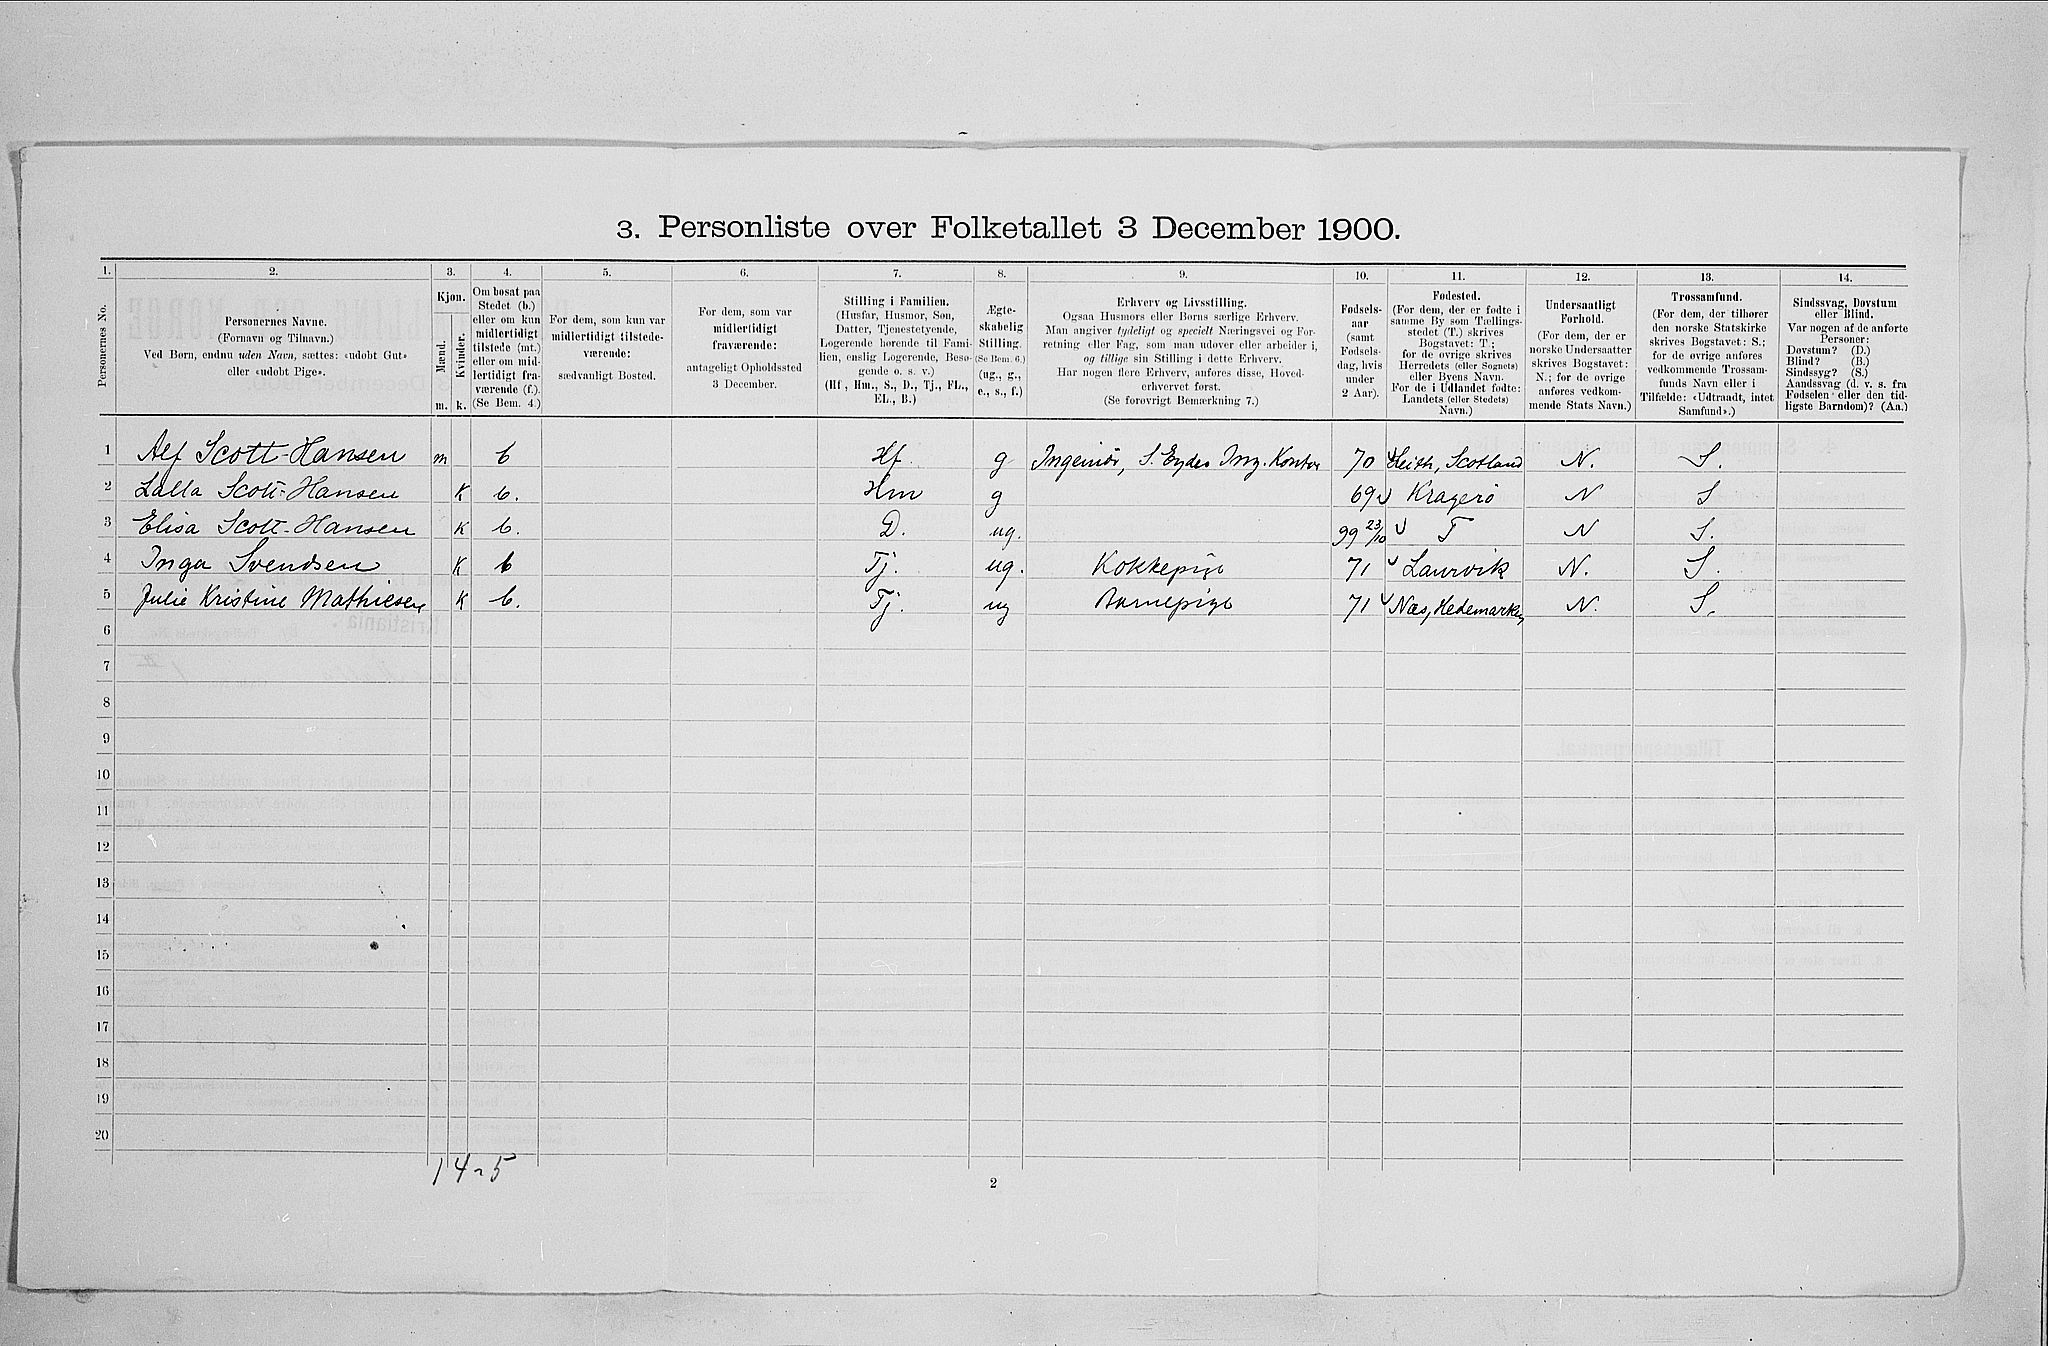 3. Personliste over Folketallet 3 December 1900.
1. 2. 3. 4. 5. 6. 7. 8. 9. 10. 11. 12. 13. 14.
Personernes No.
Personernes Navne.
(Fornavn og Tilnavn.)
Ved Børn, endnu uden Navn, sættes: «udøbt Gut»
eller «udøbt Pige».
Kjøn.
Mænd.
Kvinder.
m. k.
Om bosat paa
Stedet (b.)
eller om kun
midlertidigt
tilstede (mt.)
eller om mid-
lertidigt fra-
værende (f.).
(Se Bem. 4.)
For dem, som kun var
midlertidigt tilstede-
værende:
sædvanligt Bosted.
For dem, som var
midlertidigt
fraværende:
antageligt Opholdssted
3 December.
Stilling i Familien.
(Husfar, Husmor, Søn,
Datter, Tjenestetyende,
Logerende hørende til Fami-
lien, enslig Logerende, Besø-
gende o. s. v.)
(Hf., Hm., S., D., Tj., FL.,
EL., B.)
Ægte-
skabelig
Stilling.
(Se Bem. 6.)
(ug., g.,
e., s., f.)
Erhverv og Livsstilling.
Ogsaa Husmors eller Børns særlige Erhverv.
Man angiver tydeligt og specielt Næringsvei og For-
retning eller Fag, som man udøver eller arbeider i,
og tillige sin Stilling i dette Erhverv.
Har nogen flere Erhverv, anføres disse, Hoved-
erhvervet først.
(Se forøvrigt Bemærkning 7.)
Fødsels-
aar
(samt
Fødsels-
dag, hvis
under
2 Aar).
Fødested.
(For dem, der er fødte i
samme By som Tællings-
stedet (T.) skrives
Bogstavet: T.;
for de øvrige skrives
Herredets (eller Sognets)
eller Byens Navn.
For de i Udlandet fødte:
Landets (eller Stedets)
Navn.)
Undersaatligt
Forhold.
(For dem, der er
norske Undersaatter
skrives Bogstavet:
N.; for de øvrige
anføres vedkom-
mende Stats Navn.)
Trossamfund.
(For dem, der tilhører
den norske Statskirke
skrives Bogstavet: S.;
for de øvrige anføres
vedkommende Trossam-
funds Navn eller i
Tilfælde: «Udtraadt, intet
Samfund».)
Sindssvag, Døvstum
eller Blind.
Var nogen af de anførte
Personer:
Døvstum? (D.)
Blind? (B.)
Sindssyg? (S.)
Aandssvag (d. v. s. fra
Fødselen eller den tid-
ligste Barndom)? (Aa.)
1 Alf Scott-Hansen m b Hf. g Ingeniør, S. Eydes Ing. Kontor 70 Leith, Scotland N. S.
2 Lalla Scott-Hansen K b. Hm g 69 Kragerø N S
3 Elisa Scott-Hansen K b. D. ug. 99 23/10 T N S.
4 Inga Svendsen K b Tj. ug. Kokkepige 71 Laurvik N. S.
5 Julie Kristine Mathiesen K b. Tj. ug Barnepige 71 Næs, Hedemarken N. S.
6
7
8
9
10
11
12
13
14
15
16
17
18
19
20
1 4 5
2